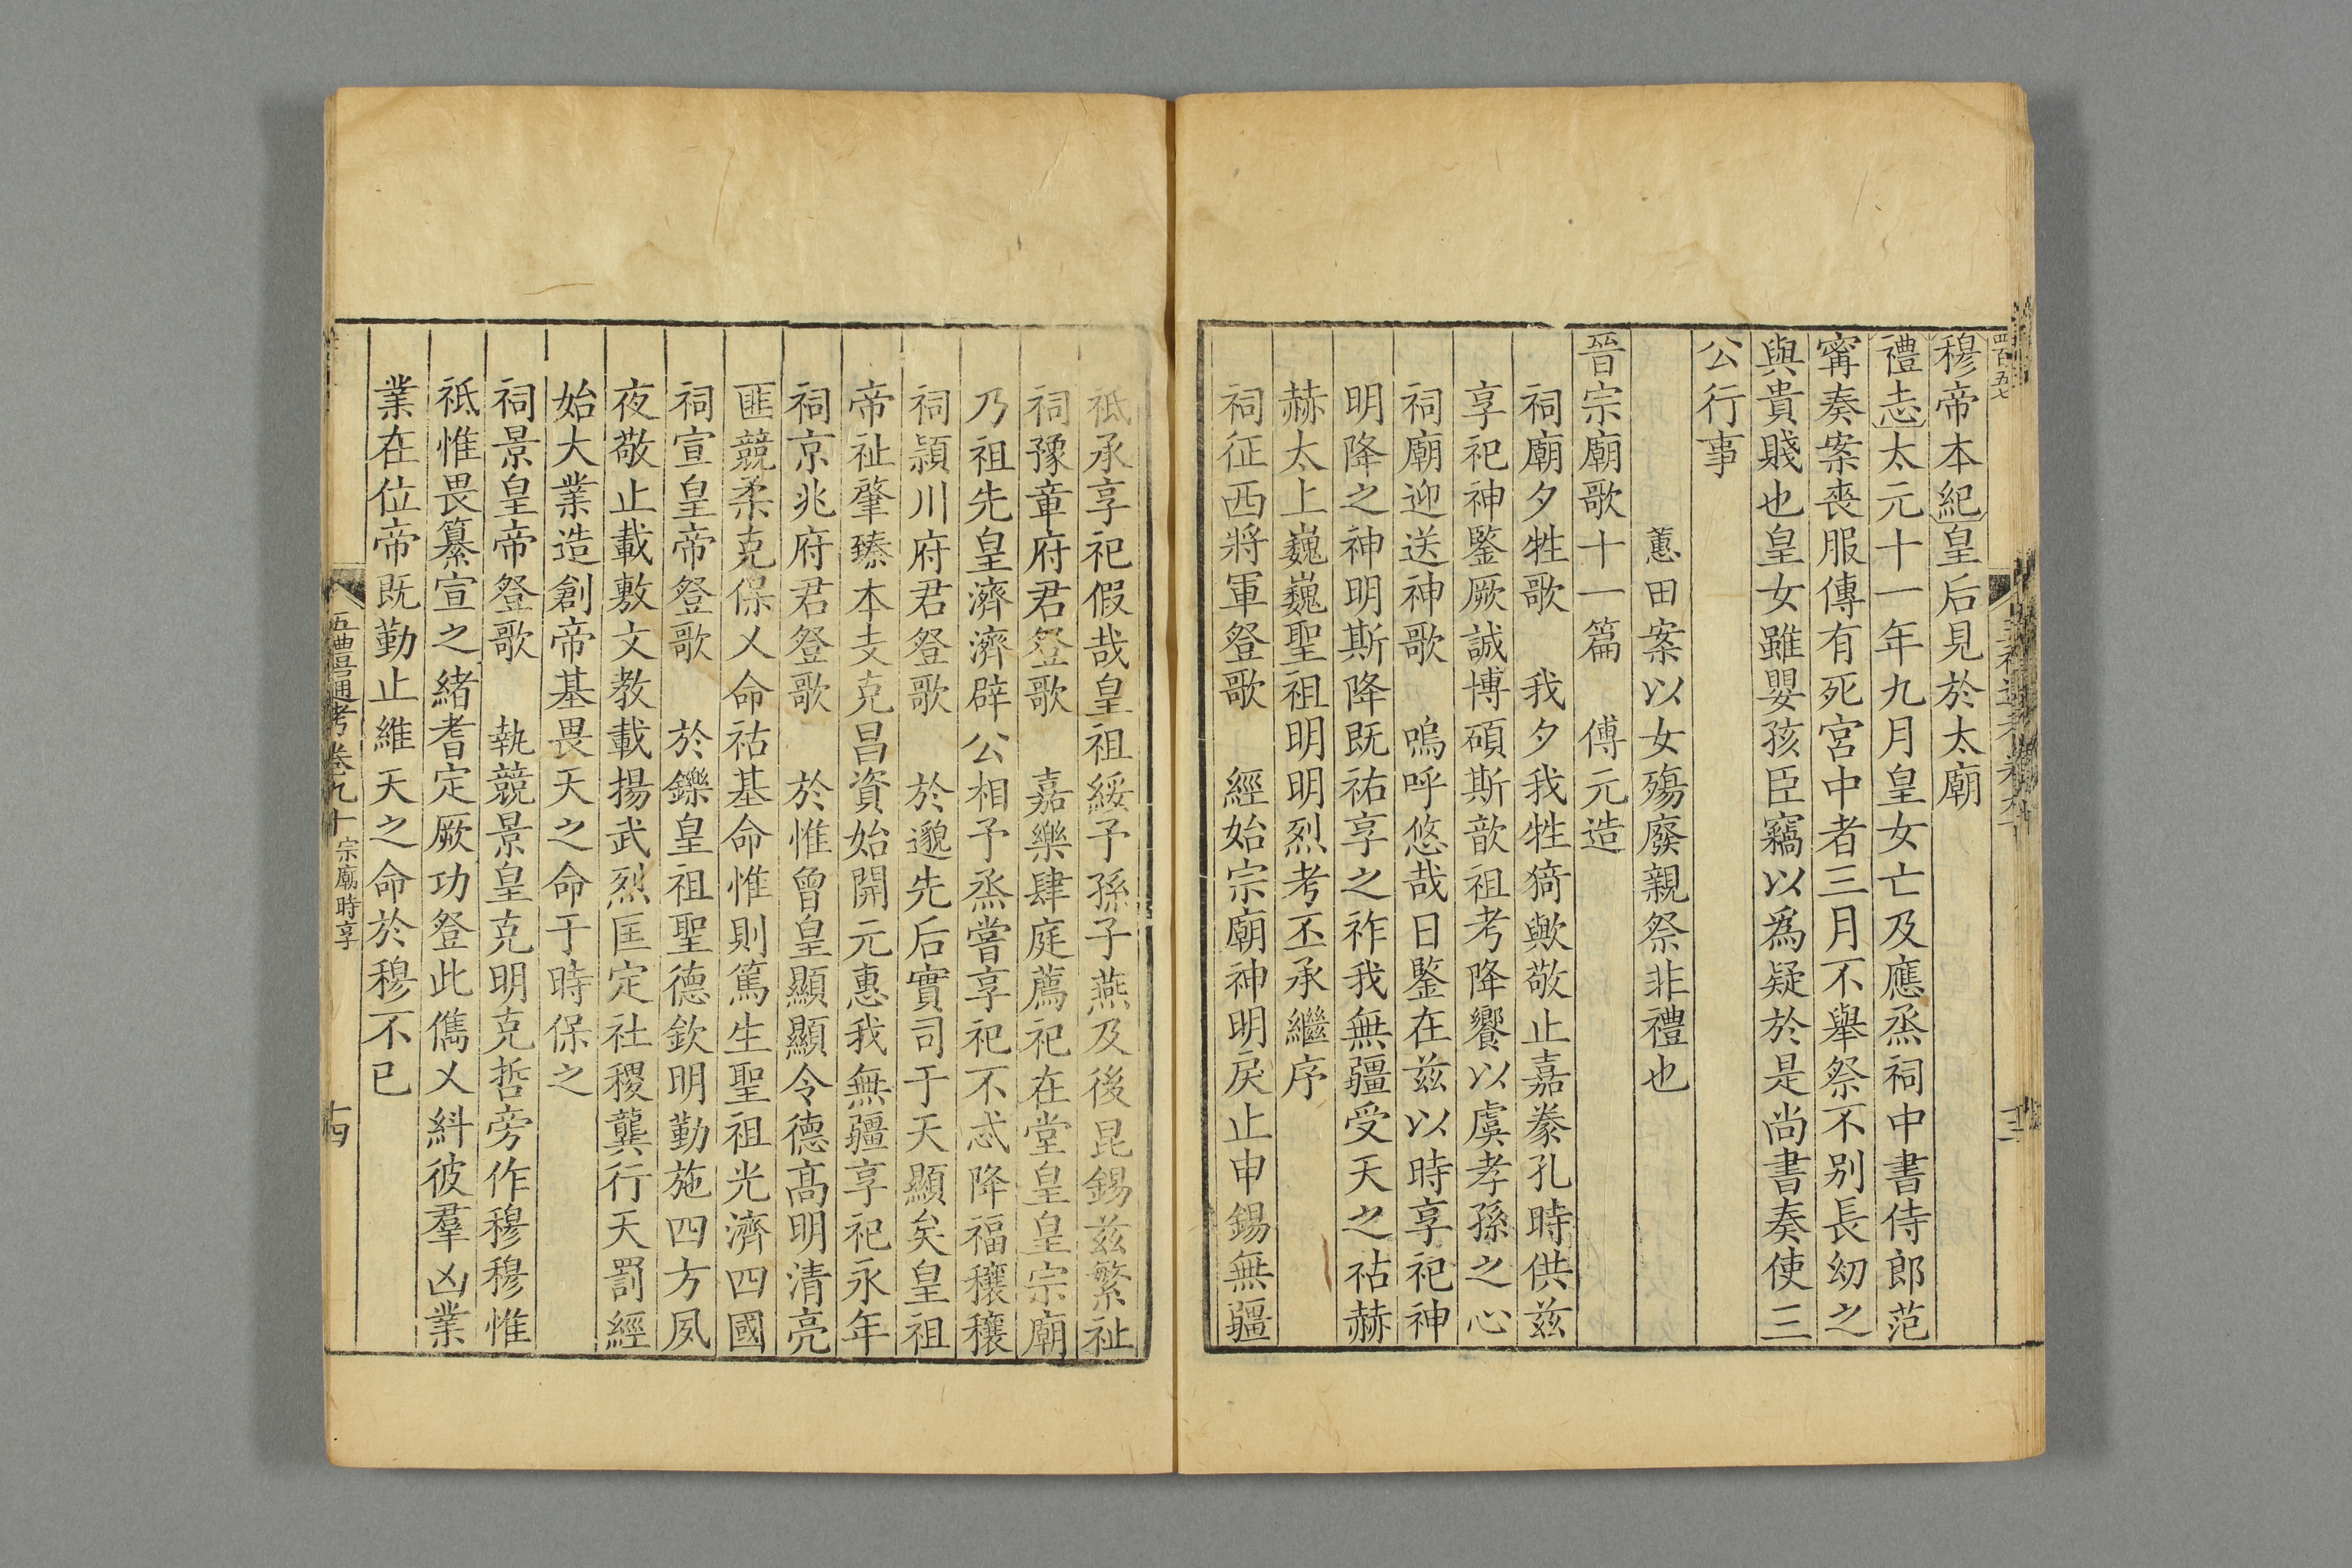 四百五七
穆帝本紀皇后見於太廟
禮志太元十一年九月皇女亡及應烝祠中書侍郎范
甯奏案喪服傳有死宮中者三月不舉祭不别長幼之
與貴賤也皇女雖嬰孩臣竊以爲疑於是尚書奏使三
公行事
蕙田案以女殤廢親祭非禮也
晉宗廟歌十一篇　傅元造
祠廟夕牲歌　我夕我牲猗歟敬止嘉豢孔時供茲
享祀神鑒厥誠博碩斯歆祖考降饗以虞孝孫之心
祠廟迎送神歌　嗚呼悠哉日鑒在茲以時享祀神
明降之神明斯降既祐享之祚我無疆受天之祜赫
赫太上巍巍聖祖明明烈考丕承繼序
祠征西將軍登歌　經始宗廟神明戾止申錫無疆
祗承享祀假哉皇祖綏予孫子燕及後昆錫茲繁祉
祠豫章府君登歌　嘉樂肆庭薦祀在堂皇皇宗廟
乃祖先皇濟濟辟公相予烝嘗享祀不忒降福穰穰
祠潁川府君登歌　於邈先后實司于天顯矣皇祖
帝祉肇臻本支克昌資始開元惠我無疆享祀永年
祠京兆府君登歌　於惟曾皇顯顯令德高明清亮
匪競柔克保乂命祜基命惟則篤生聖祖光濟四國
祠宣皇帝登歌　於鑠皇祖聖德欽明勤施四方夙
夜敬止載敷文教載揚武烈匡定社稷龔行天罰經
始大業造創帝基畏天之命于時保之
祠景皇帝登歌　執競景皇克明克哲旁作穆穆惟
祗惟畏纂宣之緒耆定厥功登此儁乂糾彼羣凶業
業在位帝既勤止維天之命於穆不已
五禮通考卷九十 宗廟時享
十四